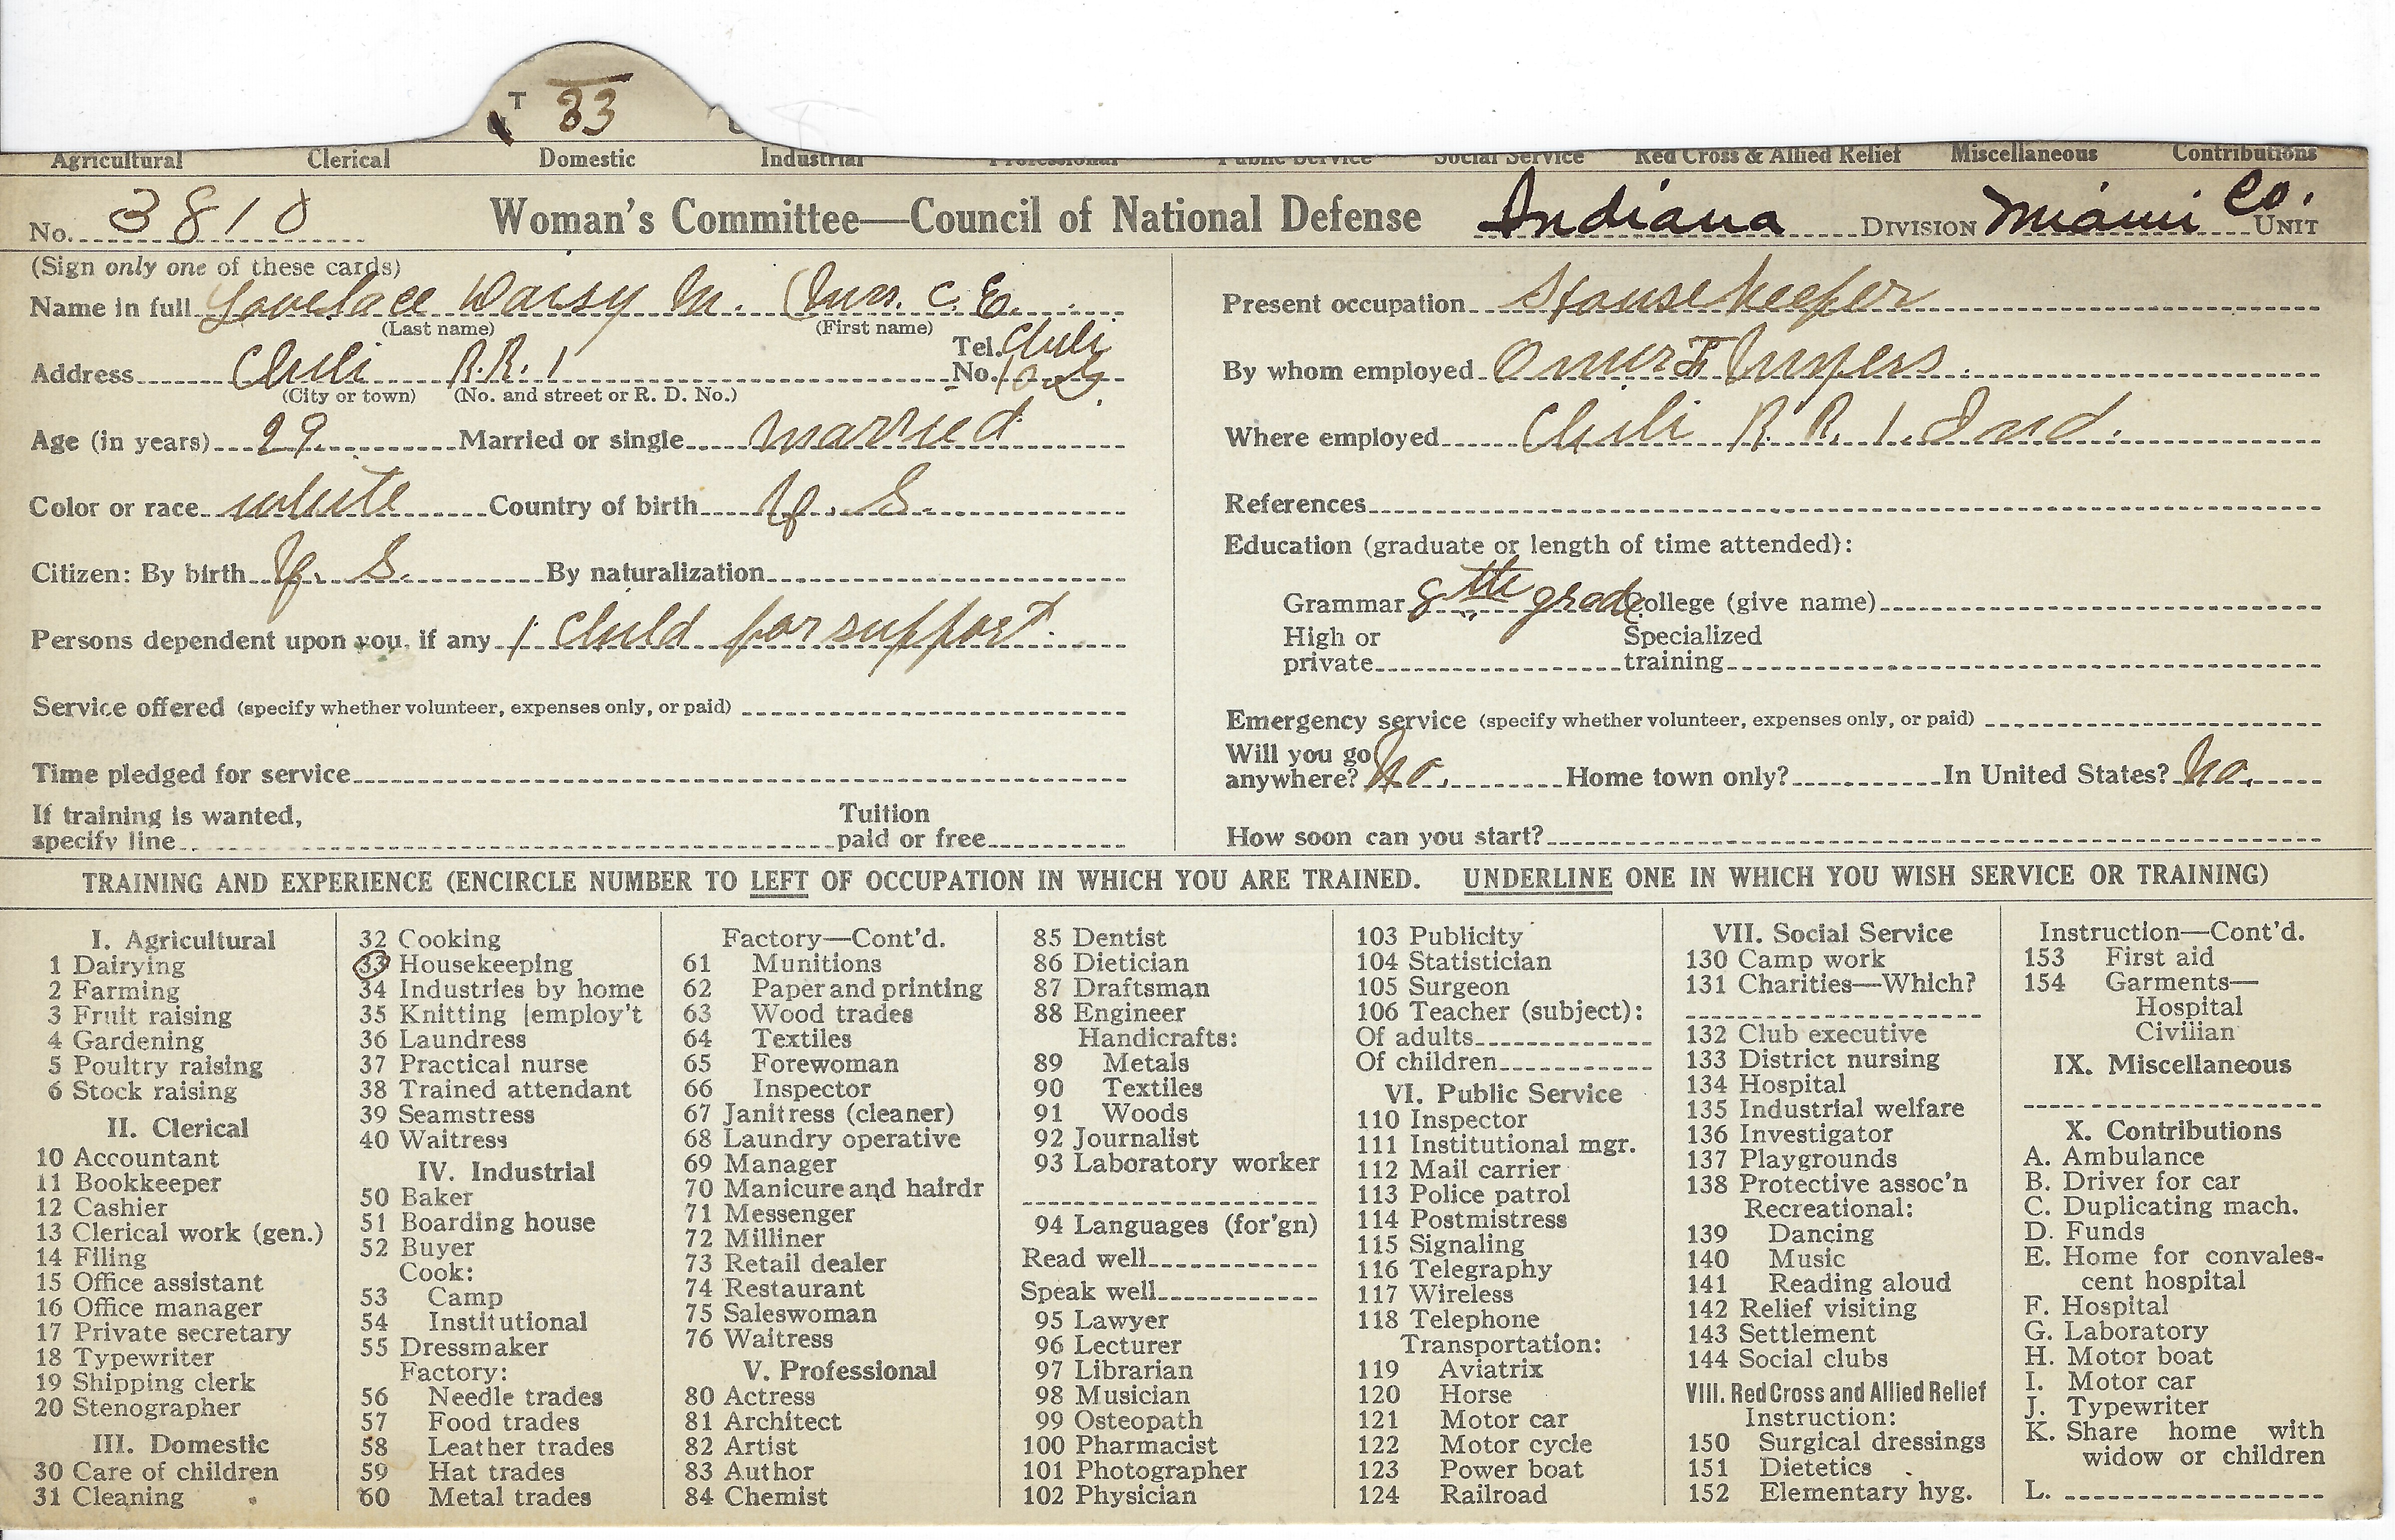 T 33
Agricultural Clerical Domestic Industrial Professional Public Service Social Service Red Cross & Allied Relief Miscellaneous Contributions
No. 3810 Woman's Committee—Council of National Defense Indiana DIVISION Miami Co. UNIT
(Sign only one of these cards)
Name in full Lovelace Daisy M. (Mrs. C. E.
(Last name) (First name)
Address Chili R.R. 1 Tel. No. Chili
(City or town) (No. and street or R. D. No.)
Age (in years) 29 Married or single married
Color or race white Country of birth U. S.
Citizen: By birth U. S. By naturalization
Persons dependent upon you, if any 1 child for support.
Service offered (specify whether volunteer, expenses only, or paid)
Time pledged for service
If training is wanted, specify line Tuition paid or free
Present occupation Housekeeper
By whom employed Omer F Myers.
Where employed Chili R. R. 1. Ind.
References
Education (graduate or length of time attended):
Grammar 8th grade College (give name)
High or private Specialized training
Emergency service (specify whether volunteer, expenses only, or paid)
Will you go anywhere? No. Home town only? In United States? No.
How soon can you start?
TRAINING AND EXPERIENCE (ENCIRCLE NUMBER TO LEFT OF OCCUPATION IN WHICH YOU ARE TRAINED. UNDERLINE ONE IN WHICH YOU WISH SERVICE OR TRAINING)
I. Agricultural
1 Dairying
2 Farming
3 Fruit raising
4 Gardening
5 Poultry raising
6 Stock raising
II. Clerical
10 Accountant
11 Bookkeeper
12 Cashier
13 Clerical work (gen.)
14 Filing
15 Office assistant
16 Office manager
17 Private secretary
18 Typewriter
19 Shipping clerk
20 Stenographer
III. Domestic
30 Care of children
31 Cleaning
32 Cooking
33 Housekeeping
34 Industries by home
35 Knitting [employ't
36 Laundress
37 Practical nurse
38 Trained attendant
39 Seamstress
40 Waitress
IV. Industrial
50 Baker
51 Boarding house
52 Buyer
Cook:
53 Camp
54 Institutional
55 Dressmaker
Factory:
56 Needle trades
57 Food trades
58 Leather trades
59 Hat trades
60 Metal trades
Factory—Cont'd.
61 Munitions
62 Paper and printing
63 Wood trades
64 Textiles
65 Forewoman
66 Inspector
67 Janitress (cleaner)
68 Laundry operative
69 Manager
70 Manicure and hairdr
71 Messenger
72 Milliner
73 Retail dealer
74 Restaurant
75 Saleswoman
76 Waitress
V. Professional
80 Actress
81 Architect
82 Artist
83 Author
84 Chemist
85 Dentist
86 Dietician
87 Draftsman
88 Engineer
Handicrafts:
89 Metals
90 Textiles
91 Woods
92 Journalist
93 Laboratory worker
94 Languages (for'gn)
Read well
Speak well
95 Lawyer
96 Lecturer
97 Librarian
98 Musician
99 Osteopath
100 Pharmacist
101 Photographer
102 Physician
103 Publicity
104 Statistician
105 Surgeon
106 Teacher (subject):
Of adults
Of children
VI. Public Service
110 Inspector
111 Institutional mgr.
112 Mail carrier
113 Police patrol
114 Postmistress
115 Signaling
116 Telegraphy
117 Wireless
118 Telephone
Transportation:
119 Aviatrix
120 Horse
121 Motor car
122 Motor cycle
123 Power boat
124 Railroad
VII. Social Service
130 Camp work
131 Charities—Which?
132 Club executive
133 District nursing
134 Hospital
135 Industrial welfare
136 Investigator
137 Playgrounds
138 Protective assoc'n
Recreational:
139 Dancing
140 Music
141 Reading aloud
142 Relief visiting
143 Settlement
144 Social clubs
VIII. Red Cross and Allied Relief
Instruction:
150 Surgical dressings
151 Dietetics
152 Elementary hyg.
Instruction—Cont'd.
153 First aid
154 Garments—
Hospital
Civilian
IX. Miscellaneous
X. Contributions
A. Ambulance
B. Driver for car
C. Duplicating mach.
D. Funds
E. Home for convales-
cent hospital
F. Hospital
G. Laboratory
H. Motor boat
I. Motor car
J. Typewriter
K. Share home with
widow or children
L.